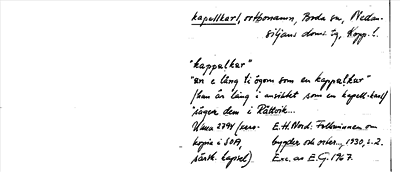 kapellkarl, ortbonamn, Boda sn, Nedan-
siljans doms. tg, Kopp. l.
"kappalkar"
"an e lång ti ögom som en kappalkar"
/han är lång i ansiktet som en kapell-karl/
säger dem i Rättvik...
Uuma 2794 /xero-
kopia i SOA,
särsk. kapsel).
E.H. Nord: Folkminnen om
bygder och orter.., 1930, s. 2.
Exc. av E.G. 1967.